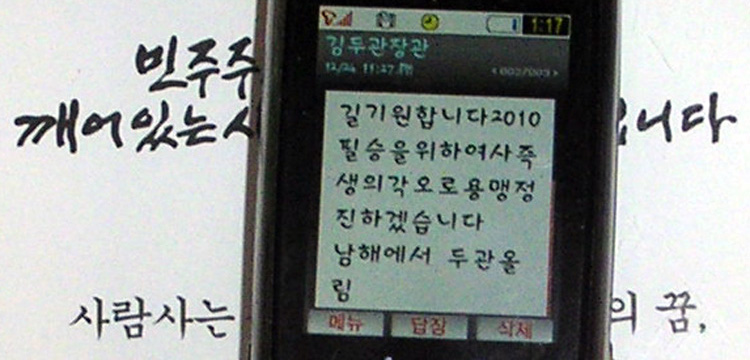 1:17
김두관장관
민주주
12/24 11:27 PM
깨어있는 입니다
길기원합니다2010
필승을위하여사즉
생의각오로용맹정
진하겠습니다
남해에서 두관올
림
사람사는 의 꿈,
메뉴 답장 삭제